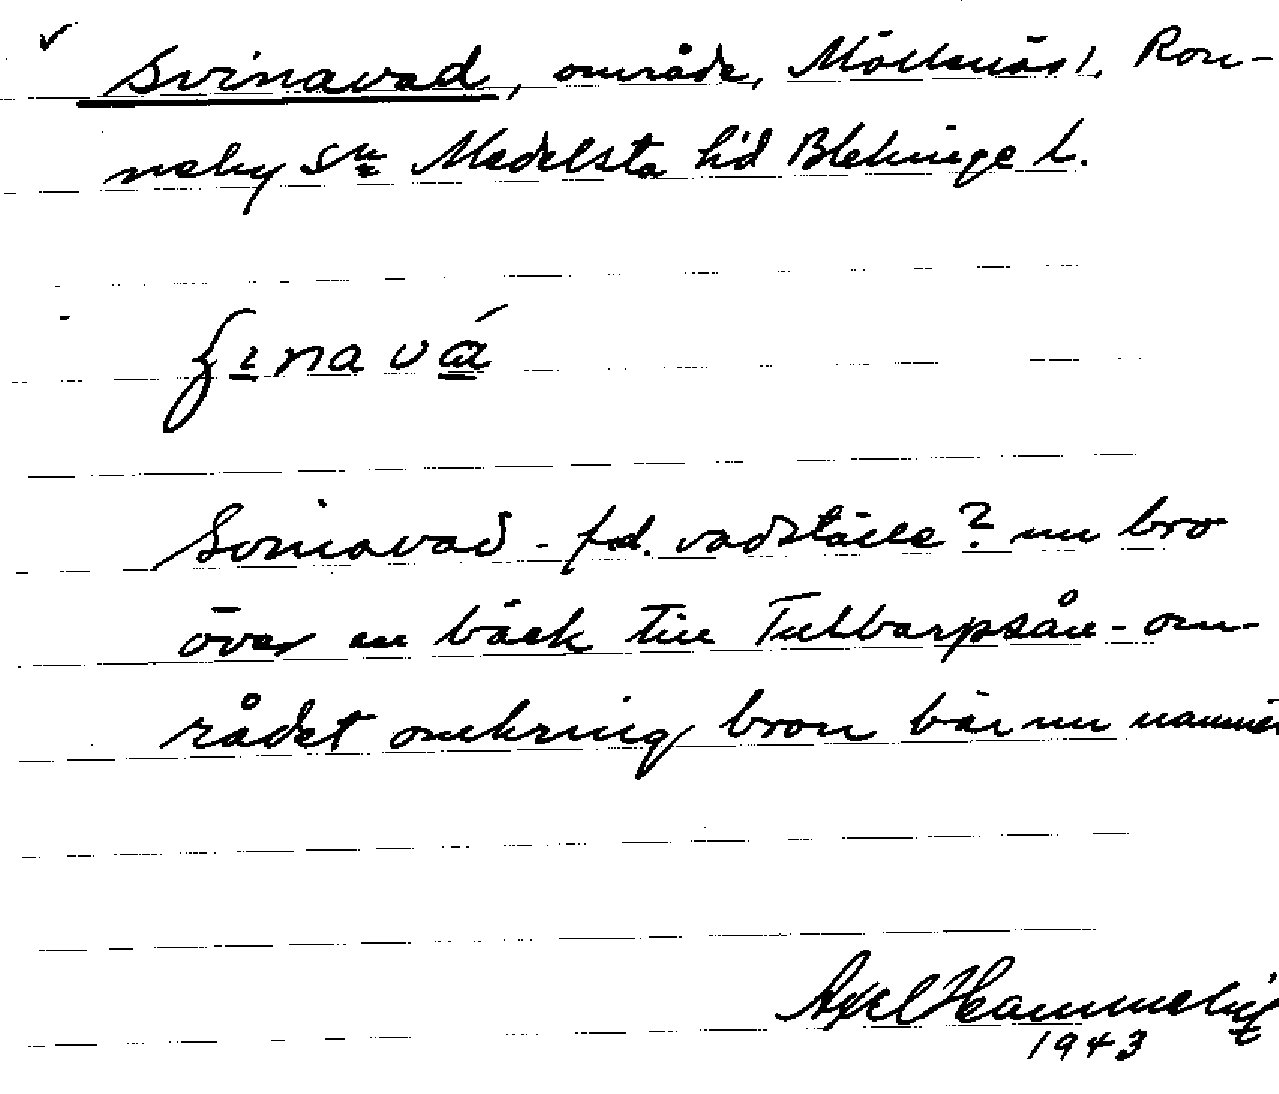 ✓ Svinavad, område, Möllenäs l. Ron-
neby sn Medelsta hd Blekinge l.
Svinavad - f.d. vadställe? nu bro
över en bäck till Tubbarpsån - om-
rådet omkring bron bär nu namnet
Axel
1943